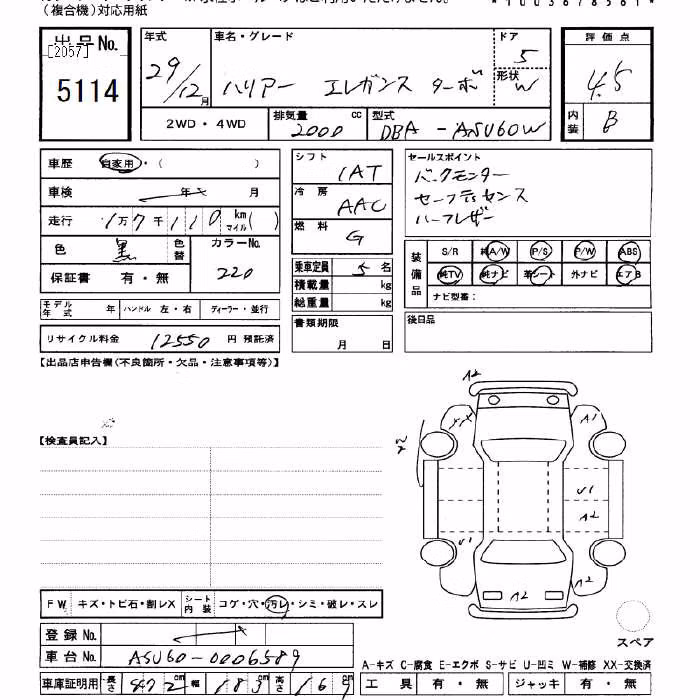 （複合機）対応用紙
出品No.
[2057]
5114
年式
29/12月
車名・グレード
ハリアー エレガンス ターボ
ドア
5
形状
W
評価点
4.5
内装
B
2WD・4WD
排気量
2000 cc
型式
DBA-ASU60W
車歴 自家用・（ ）
車検 年 月
走行 1万7千110 km マイル( )
色 黒 色替
カラーNo.
220
保証書 有・無
モデル年式 年 ハンドル 左・右 ディーラー・並行
リサイクル料金 12550 円 預託済
シフト
IAT
冷房
AAC
燃料
G
乗車定員 5 名
積載量 kg
総重量 kg
書類期限
月 日
セールスポイント
バックモニター
セーフティセンス
ハーフレザー
装備品
S/R 純A/W P/S P/W ABS
純TV 純ナビ 革シート 外ナビ エアB
ナビ型番：
後日品
【出品店申告欄(不良箇所・欠品・注意事項等)】
【検査員記入】
A2
A1
U1
A2
U1
A2
FW キズ・トビ石・割レX シート内装 コゲ・穴・汚レ・シミ・破レ・スレ
登録No.
車台No. ASU60-0006589
車庫証明用 長さ 472cm 幅 183cm 高さ 169cm
スペア
A-キズ C-腐食 E-エクボ S-サビ U-凹ミ W-補修 XX-交換済
工具 有・無 ジャッキ 有・無